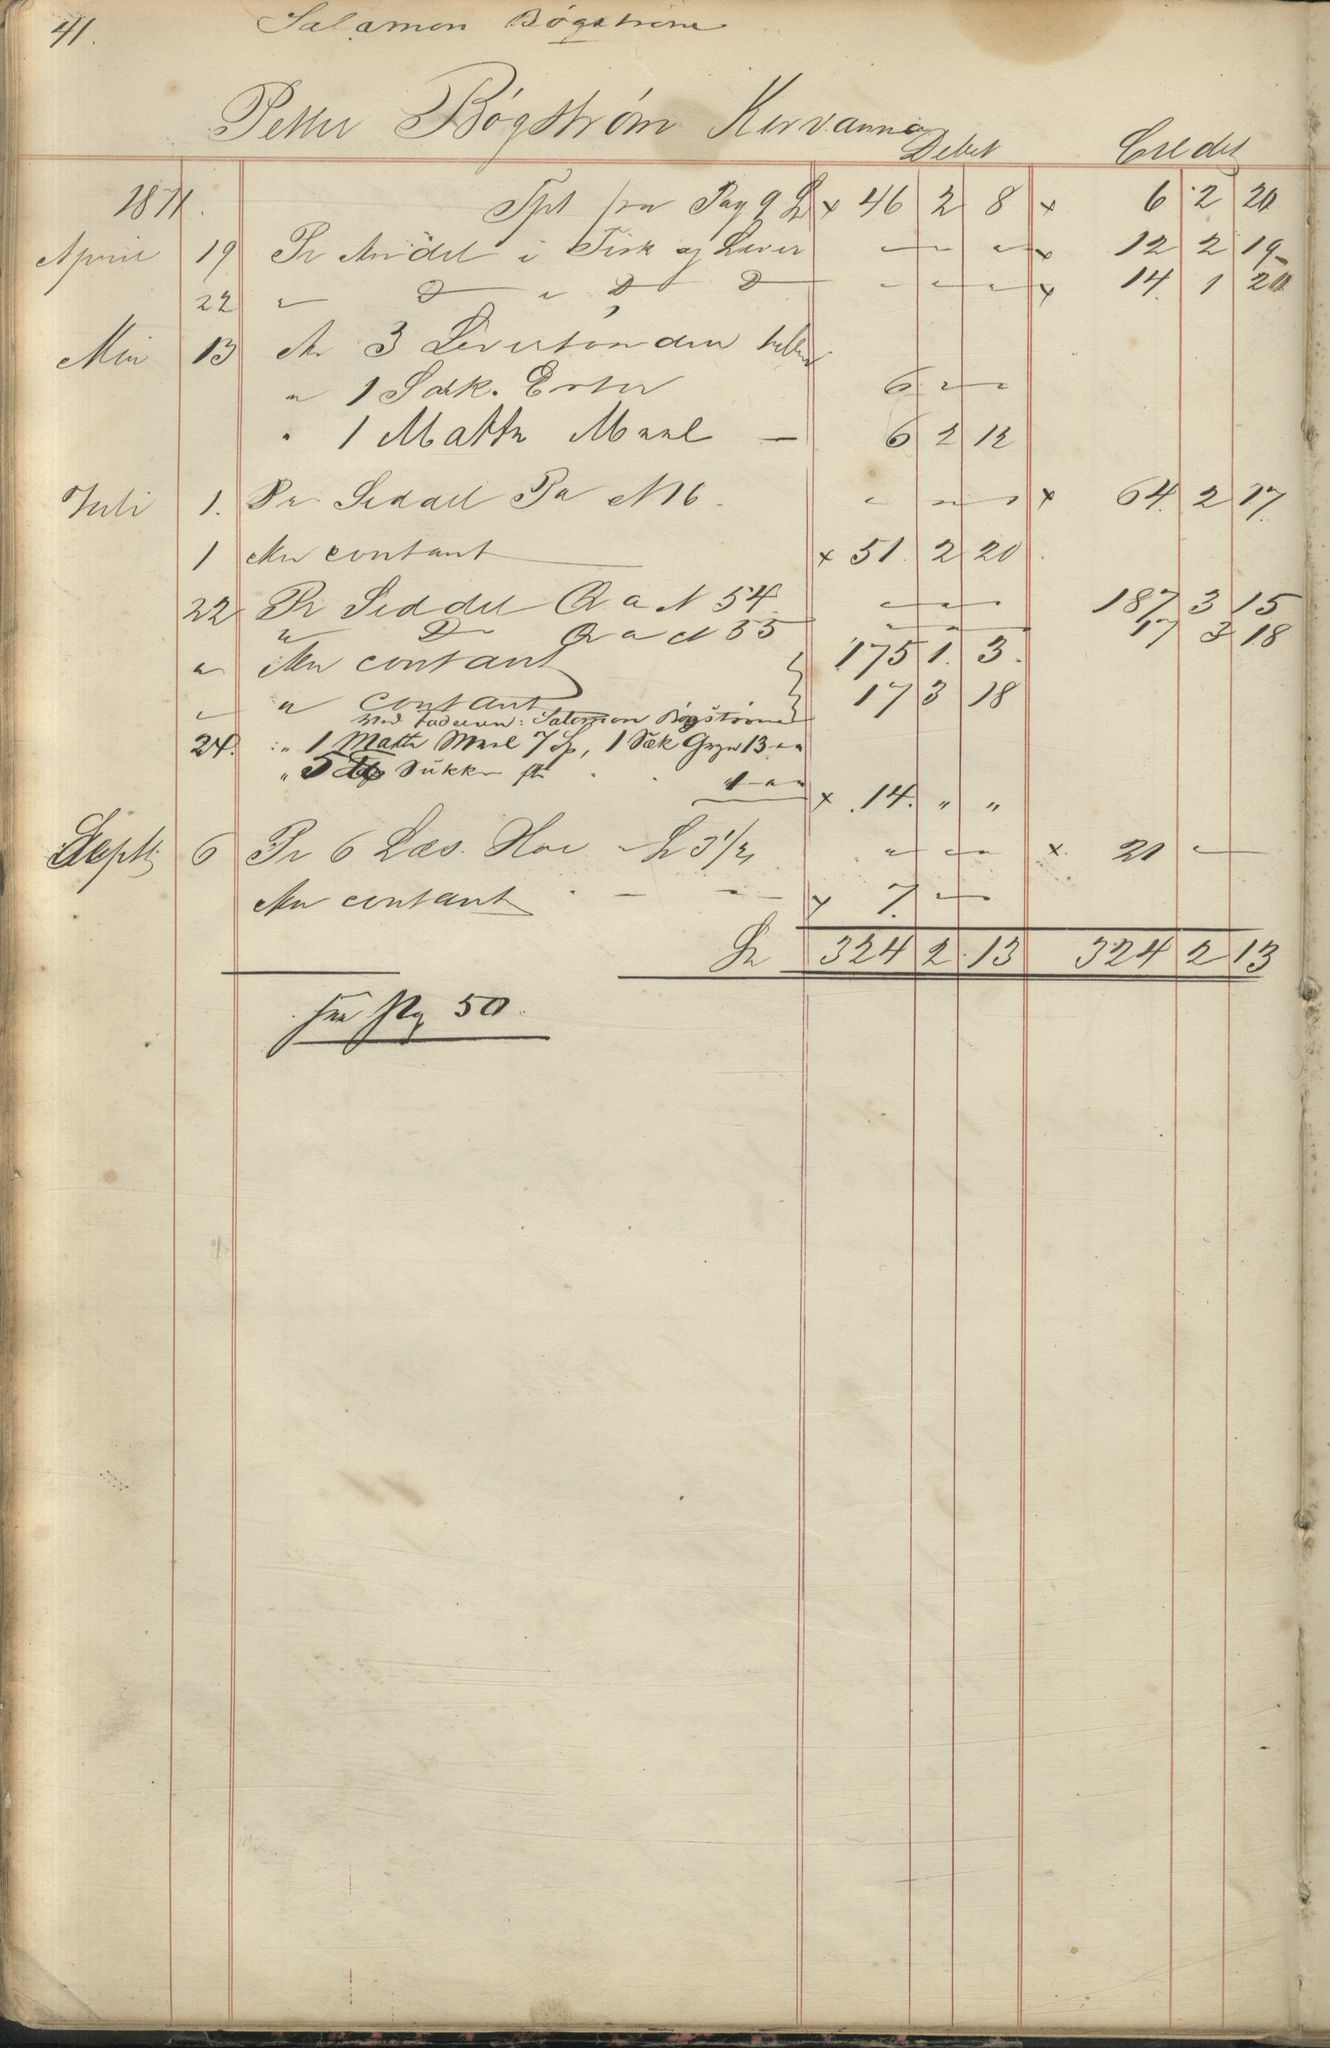 41. Salamon Bøgstrøm
Petter Bøgstrøm Kervanna
Debet Credit
1871. Tpt fra Pag 9 × 46 2 8 × 6 2 20
April 19 Pr Andel i Fisk og Lever " " " × 12 2 19
22 " D " D D " " " × 14. 1 20
Mai 13 An 3 Levertønder
" 1 Sæk. Erter 6 " "
" 1 Matte Meel — 6 2 12
Juli 1. Pr Seddel Pa N 16. " " " × 64. 2 17.
1 An contant × 51. 2 20.
22 Pr Seddel Qa N 54. " " 187 3 15
" D Qa N 55 " " 17 3 18
" An contant 175 1. 3.
" " contant 17 3 18
ved Faderen: Salomon Bøgstrøm
24. " 1 Matte Meel 7 Sp, 1 Sæk Gryn 13 " "
" 5 Sukker 1 " " × 14. " "
Septb 6 Pr 6 Læs. Høe 3 1/2 " " " × 21 —
An contant — — × 7. —
324 2 13 324 2 13
pag 50.